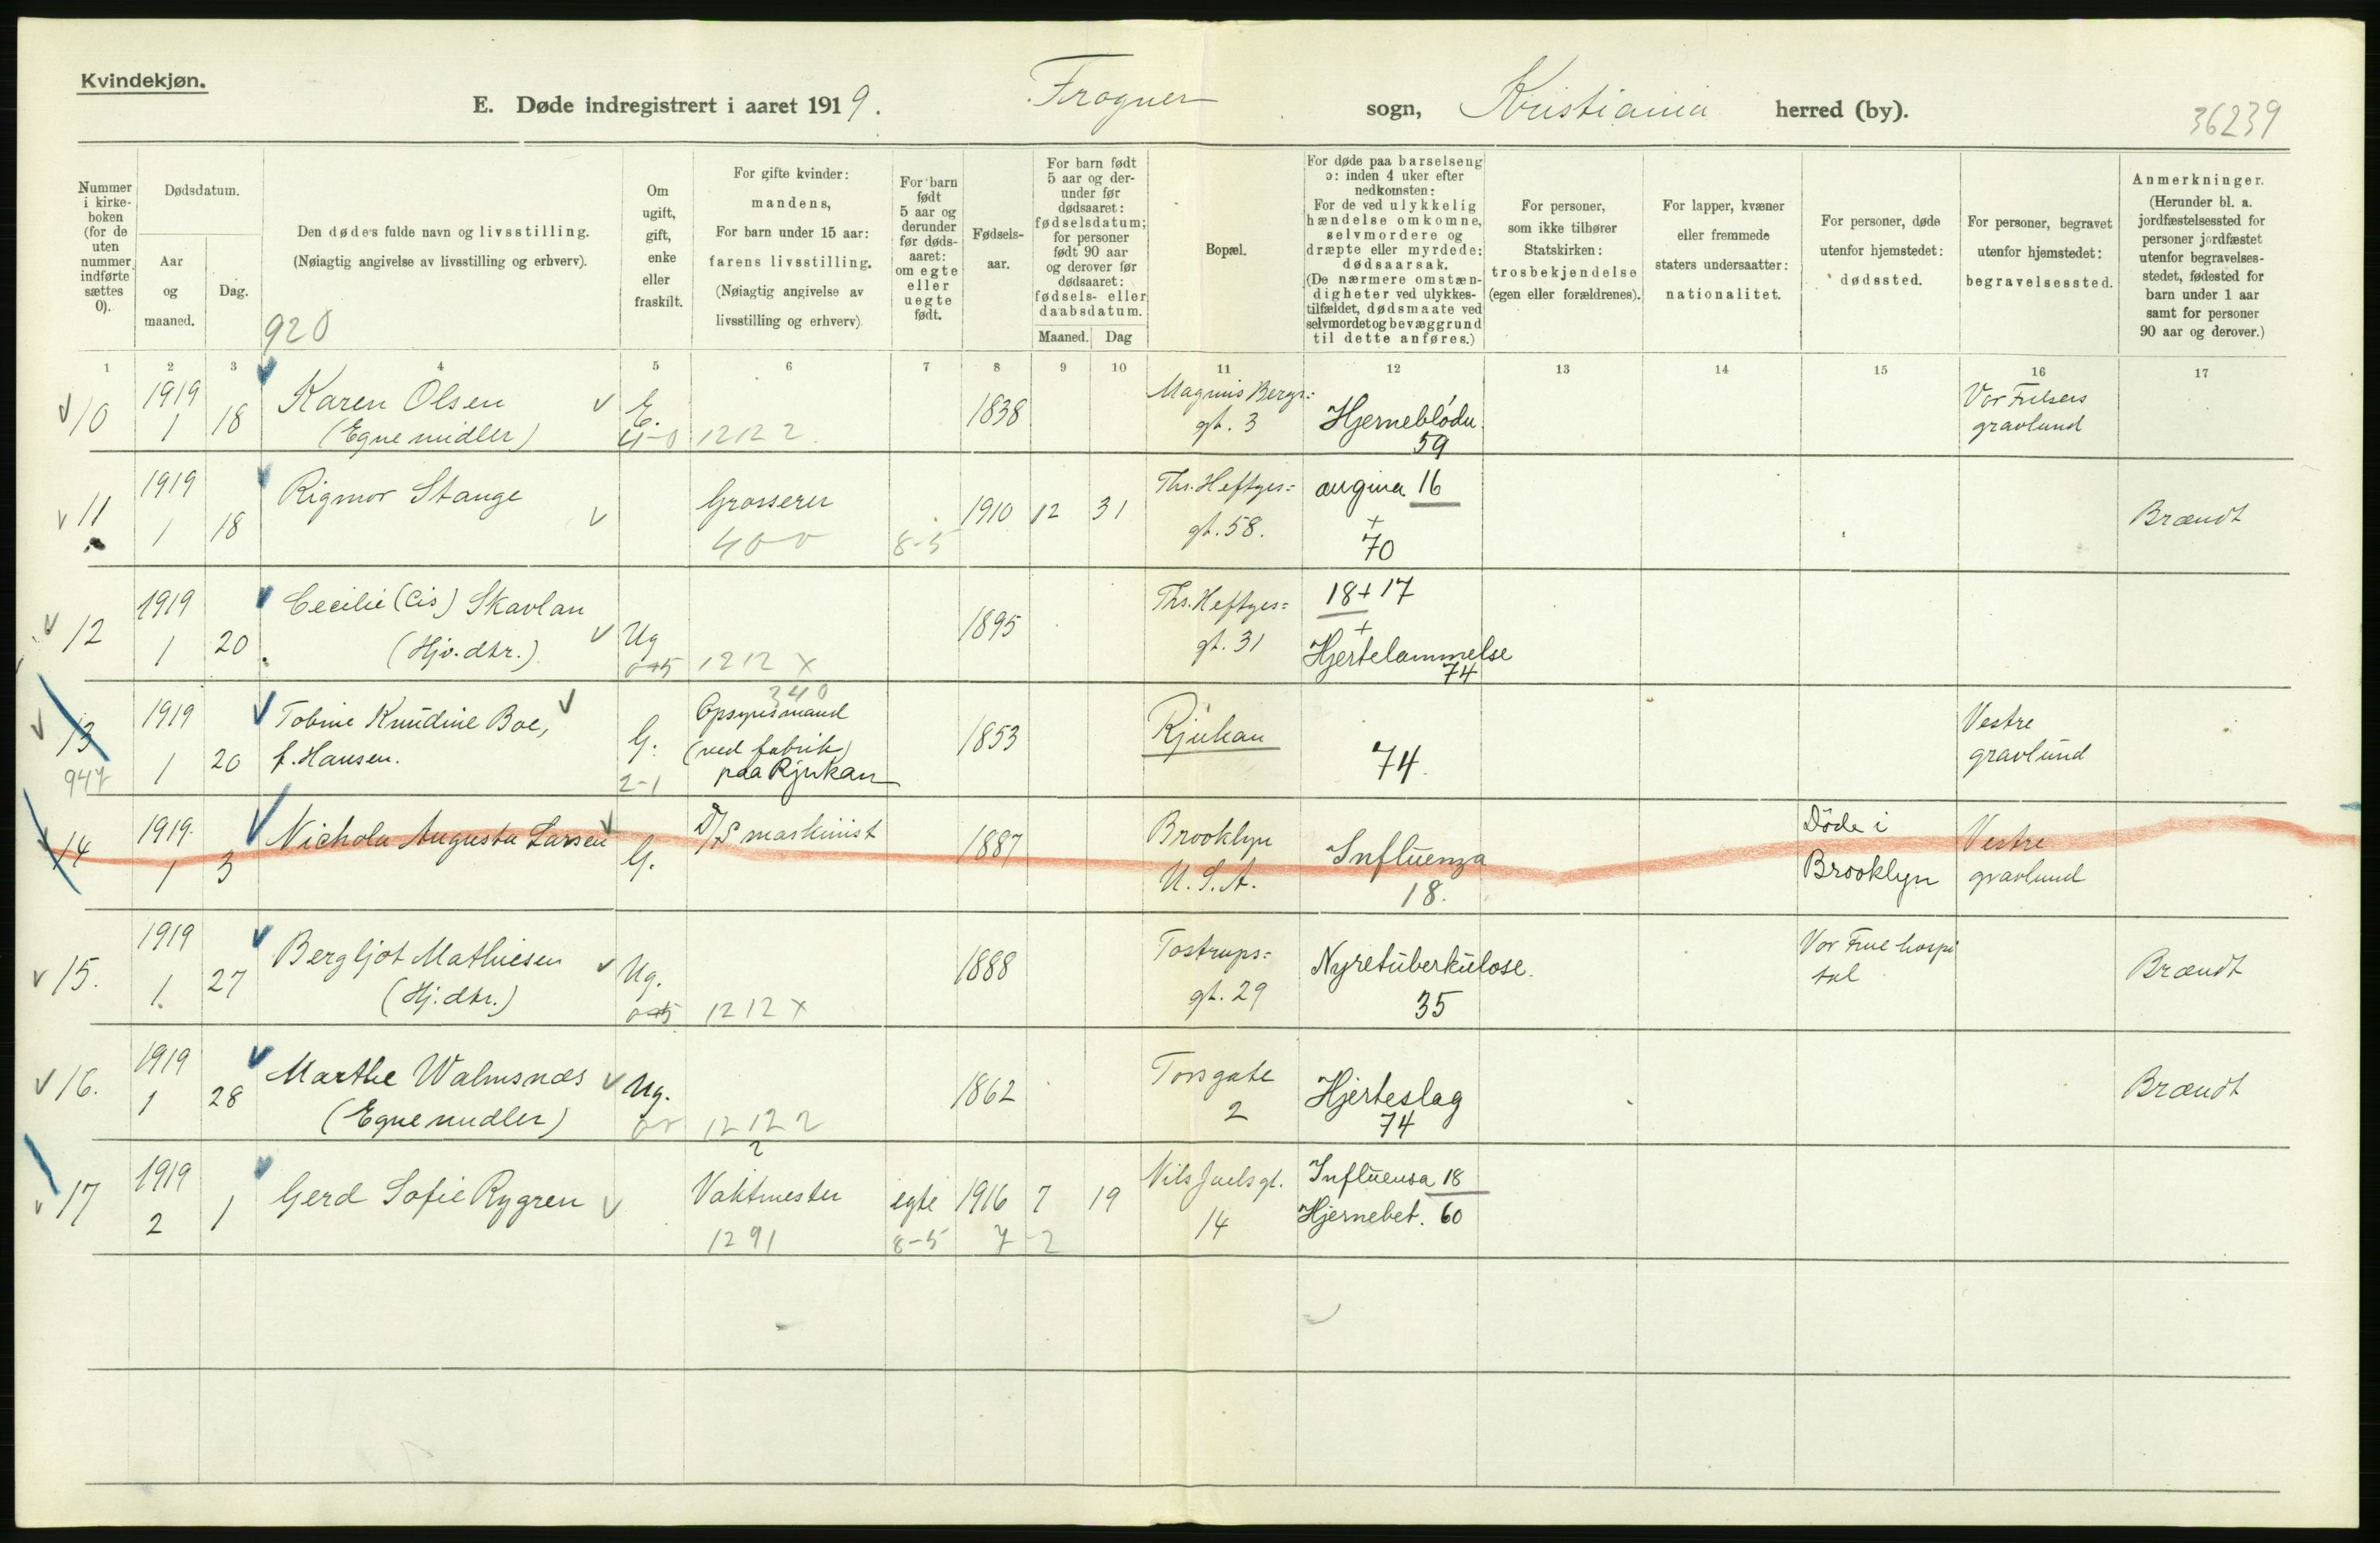 Kvindekjøn.
E. Døde indregistrert i aaret 1919. Frogner sogn, Kristiania herred (by).
36239
Nummer i kirke- boken (for de uten nummer indførte sættes 0).
Dødsdatum.
Aar og maaned.
Dag.
Den dødes fulde navn og livsstilling.
(Nøiagtig angivelse av livsstilling og erhverv).
920
Om ugift, gift, enke eller fraskilt.
For gifte kvinder:
mandens,
For barn under 15 aar:
farens livsstilling.
(Nøiagtig angivelse av
livsstilling og erhverv)
For barn født 5 aar og derunder før døds- aaret: om egte eller uegte født.
Fødsels- aar.
For barn født 5 aar og der- under før dødsaaret: fødselsdatum; for personer født 90 aar og derover før dødsaaret: fødsels- eller daabsdatum.
Maaned. Dag
Bopæl.
For døde paa barselseng ɔ: inden 4 uker efter nedkomsten:
For de ved ulykkelig hændelse omkomne, selvmordere og dræpte eller myrdede: dødsaarsak.
(De nærmere omstæn- digheter ved ulykkes- tilfældet, dødsmaate ved selvmordet og bevæggrund til dette anføres.)
For personer, som ikke tilhører Statskirken: trosbekjendelse (egen eller forældrenes).
For lapper, kvæner eller fremmede staters undersaatter: nationalitet.
For personer, døde utenfor hjemstedet: dødssted.
For personer, begravet utenfor hjemstedet: begravelsessted.
Anmerkninger.
(Herunder bl. a. jordfæstelsessted for personer jordfæstet utenfor begravelses- stedet, fødested for barn under 1 aar samt for personer 90 aar og derover.)
1 2 3 4 5 6 7 8 9 10 11 12 13 14 15 16 17
10 1919 1 18 Karen Olsen E. 1838 Magnus Bergs= gt. 3 Hjerneblödn. 59 Vor Frelsers gravlund
(Egne midler) 4-0 1212 2.
11 1919 1 18 Rigmor Stange Grosserer 1910 12 31 Ths. Heftyes= gt. 58. angina 16 + 70 Brændt
400 8-5
12 1919 1 20 Cecilie (Cis) Skavlan Ug 1895 Ths. Heftyes= gt. 31 18+17 + Hjertelammelse 74
(Hjv. dtr.) 1212 x
13 1919 1 20 Tobine Knudine Boe, f. Hansen. G. 340 Opsynsmand (ved fabrik) paa Rjukan 1853 Rjukan 74. Vestre gravlund
947 2-1
14 1919. 1 3 Nichola Augusta Larsen G. D/S maskinist 1887 Brooklyn U.S.A. Influenza 18. Döde i Brooklyn Vestre gravlund
15. 1919 1. 27 Bergljot Mathiesen Ug. 1888 Tostrups= gt. 29 Nyretuberkulose. 35 Vor Frue hospi tal Brændt
(Hj. dtr.) 1212 x
16. 1919 1 28 Marthe Walmsnæs Ug. 1862 Torsgate 2 Hjerteslag 74 Brændt
(Egne midler) 1212 2
17 1919 2 1 Gerd Sofie Rygren 2 Vaktmester egte 1916 7 19 Nils Juels gt. 14 Influensa 18 Hjernebet. 60
1291 8-5 7-2